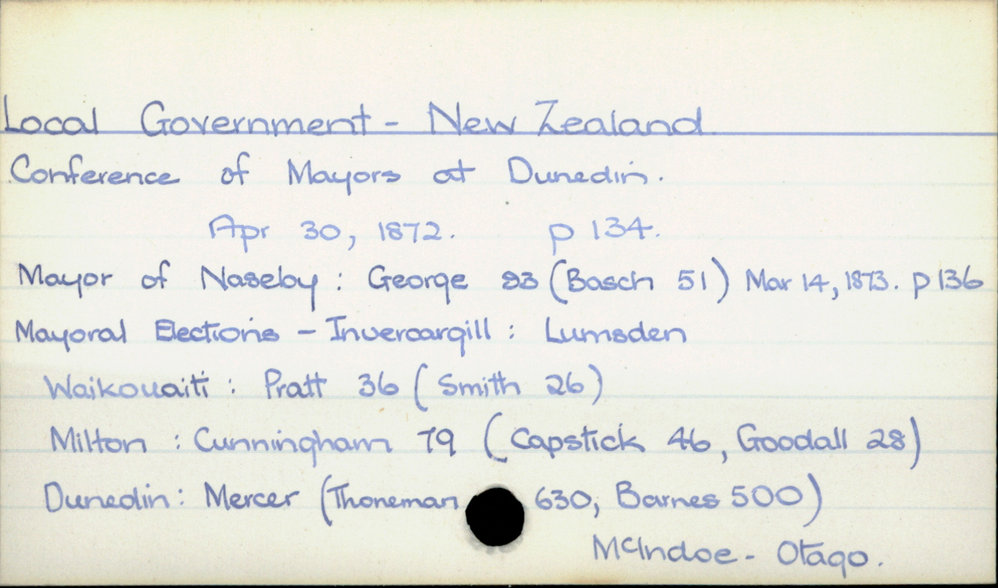 Local Government - New Zealand
Conference of Mayors at Dunedin.
Apr 30, 1872. p 134.
Mayor of Naseby : George 83 (Basch 51) Mar 14, 1873. p 136
Mayoral Elections - Invercargill : Lumsden
Waikouaiti : Pratt 36 (Smith 26)
Milton : Cunningham 79 (Capstick 46, Goodall 28)
Dunedin : Mercer (Thoneman 630, Barnes 500)
McIndoe - Otago.